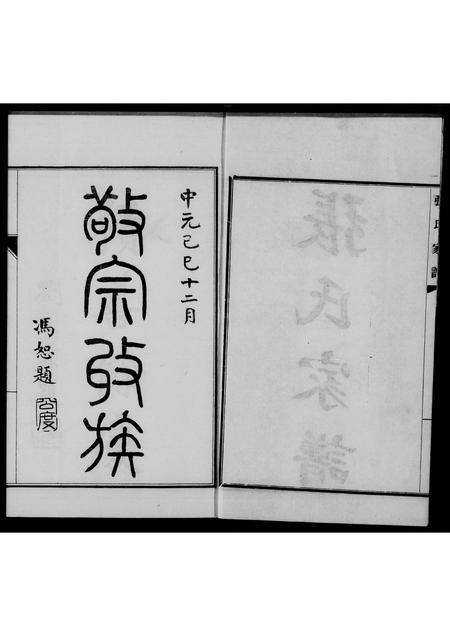 張氏家譜
張氏家譜
中元己巳十二月
敬宗收族
馮恕題
公度